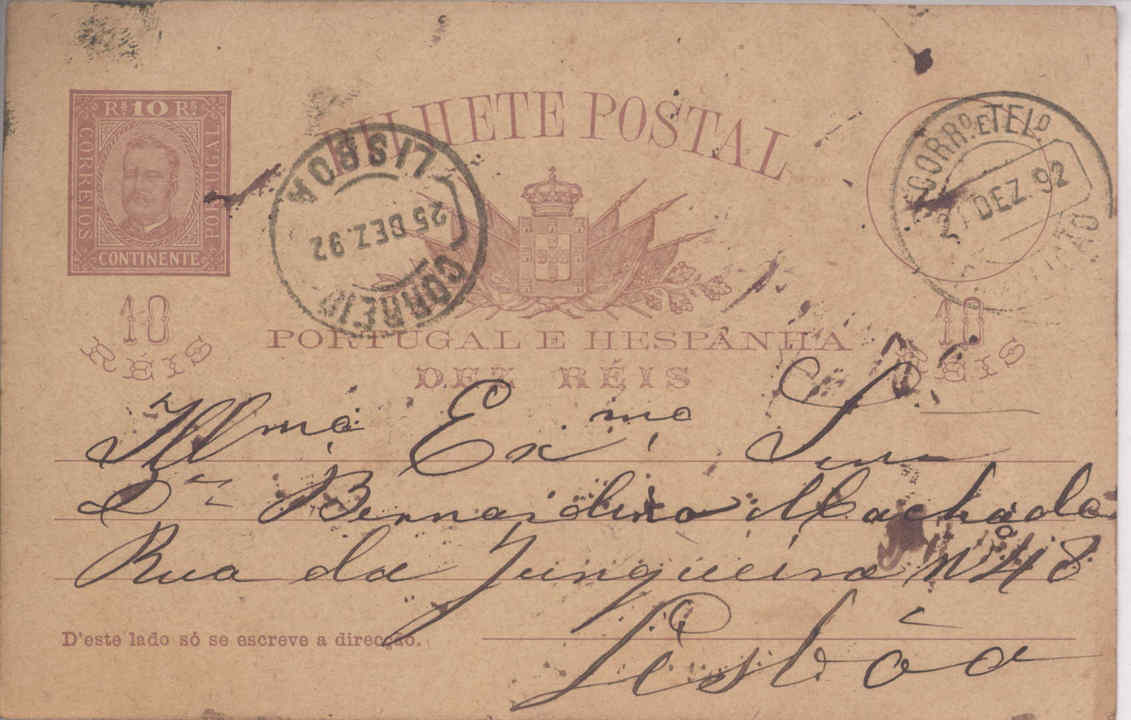 Rs 10 Rs
CORREIOS
PORTUGAL
CONTINENTE
BILHETE POSTAL
LISBOA
25 DEZ. 92
CORREIO
CORRO. E TELO.
DEZ. 92
10
RÉIS
10
RÉIS
PORTUGAL E HESPANHA
DEZ RÉIS
Illmo Exmo Snr
Dr Bernardino Machado
Rua da Junqueira No 48
D'este lado só se escreve a direcção.
Lisboa